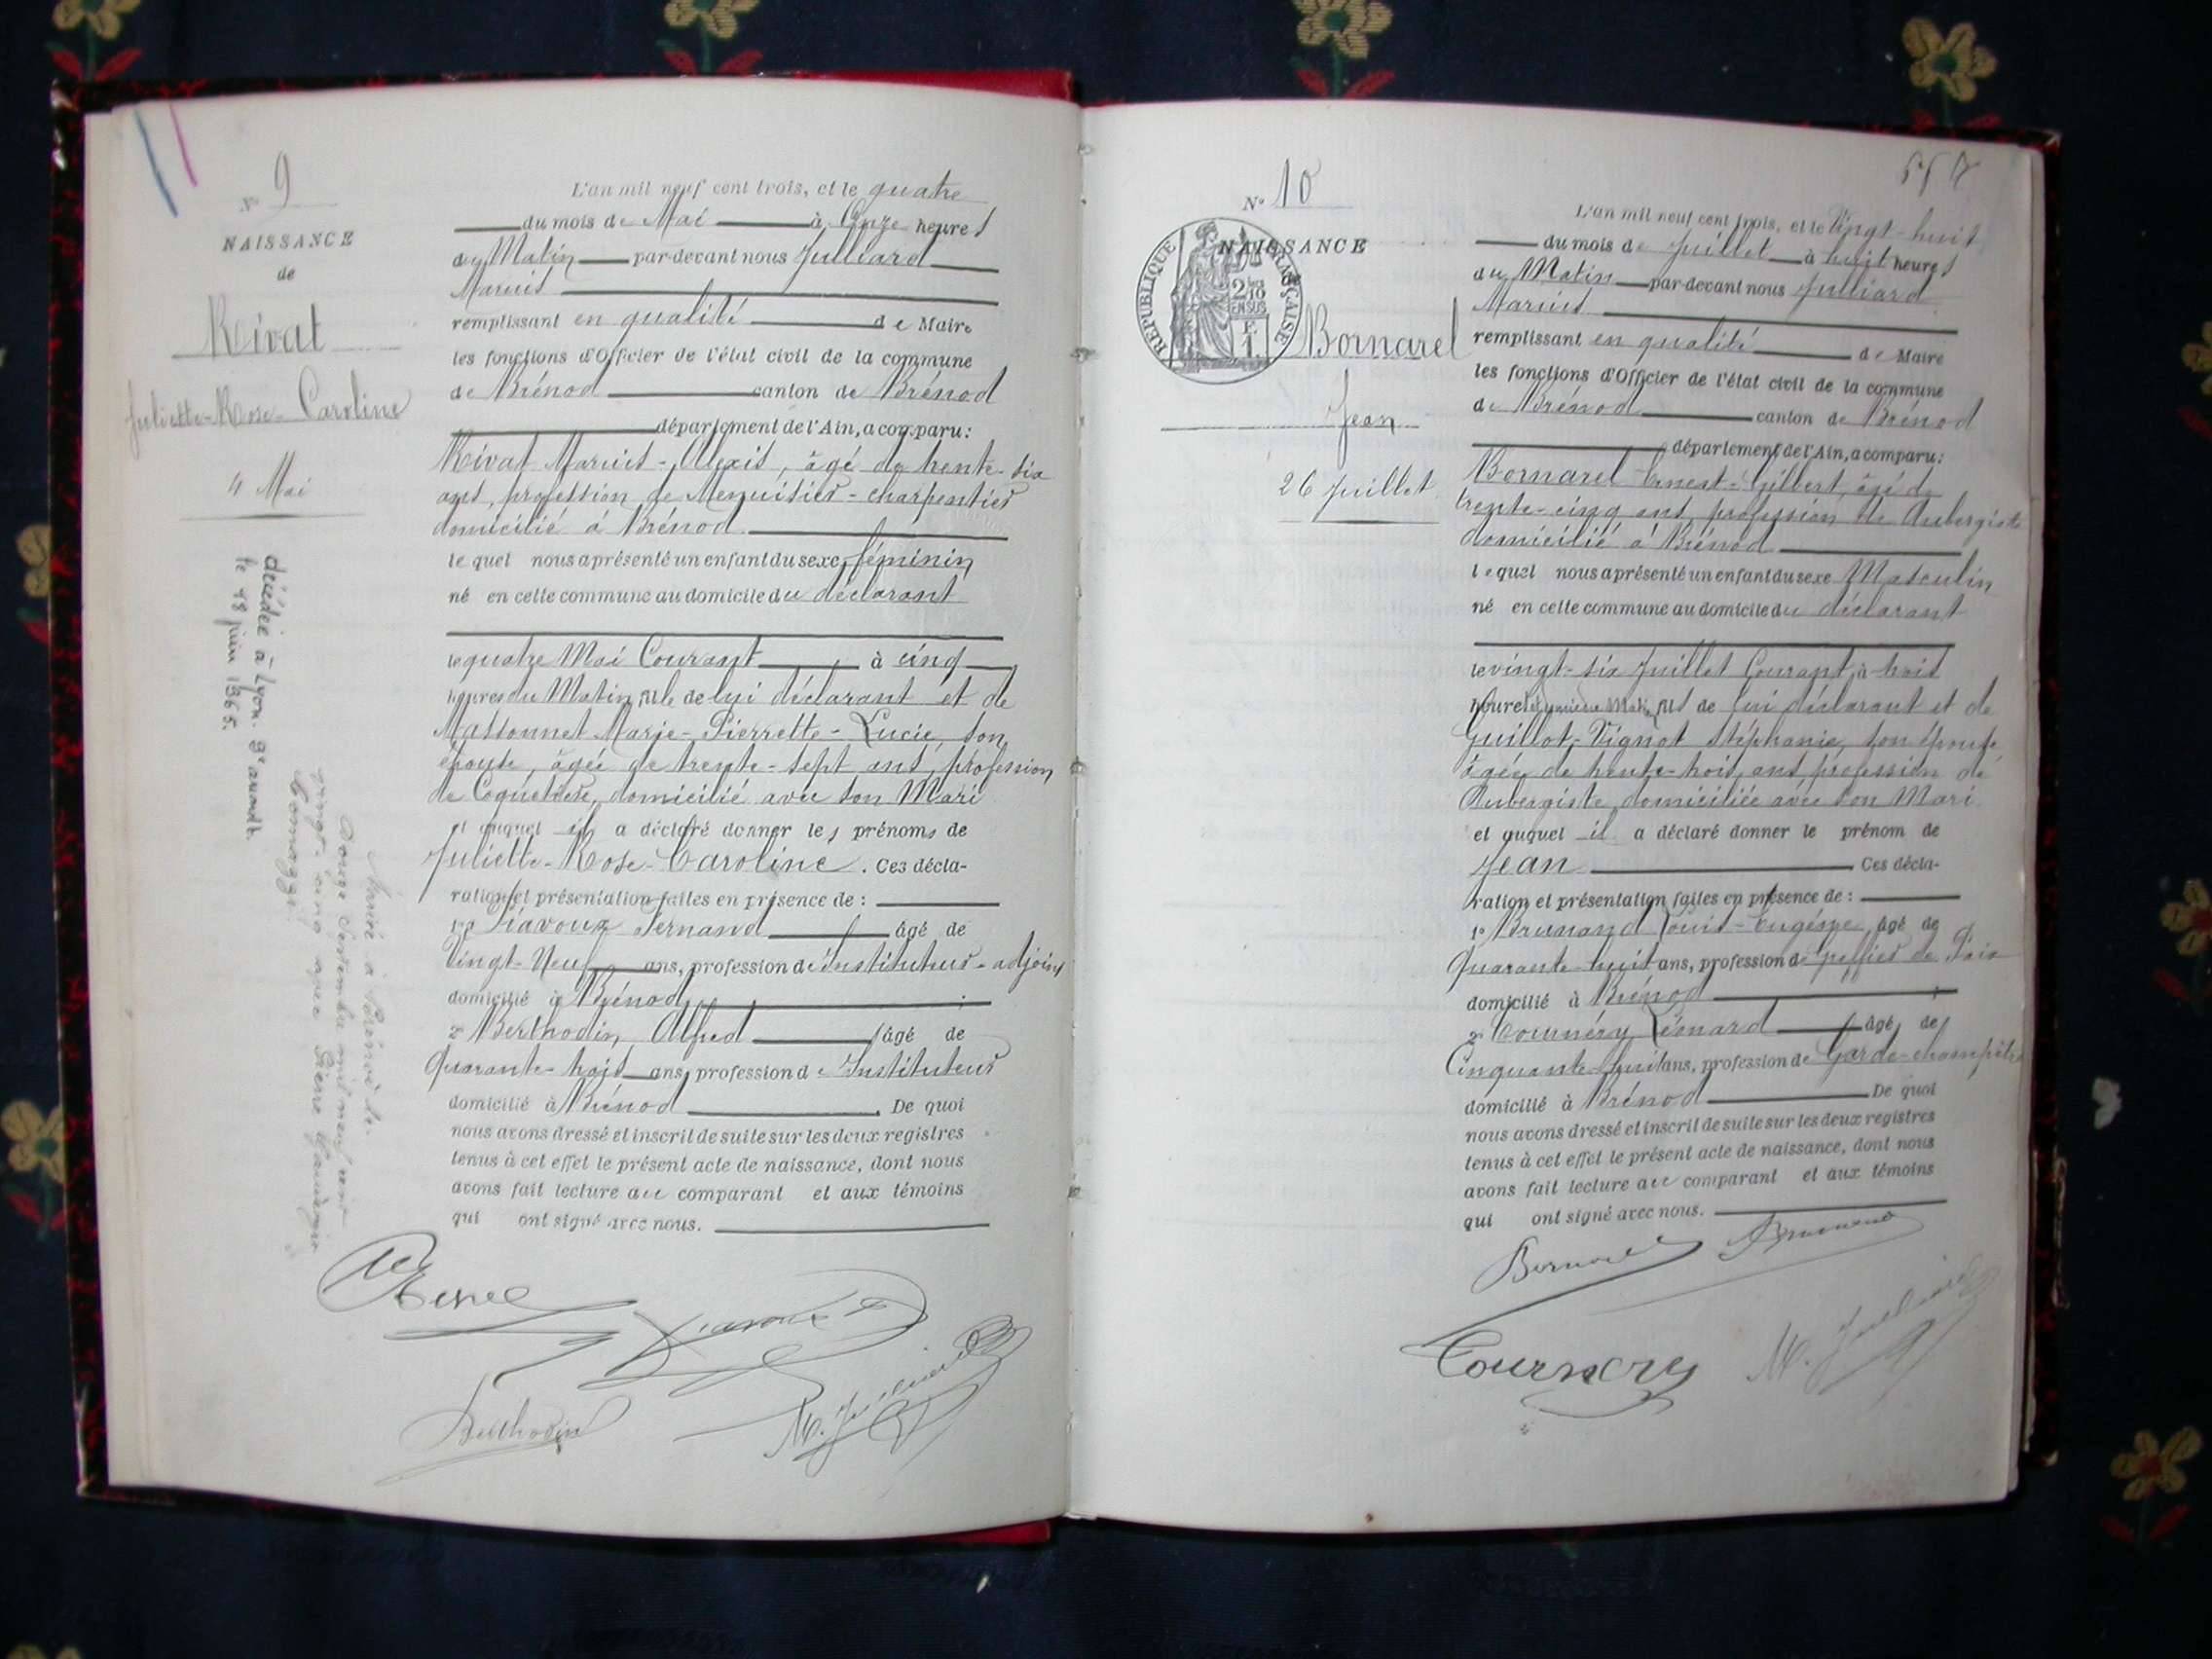 N° 9
NAISSANCE
de
Rivat
Juliette-Rose-Caroline
4 Mai
décédée à Lyon. 3e arrondt.
le 18 juin 1965.
Marié à Brénod le
Douze Septembre mil neuf cent
vingt-cinq avec Pierre
L'an mil neuf cent trois, et le quatre
du mois de Mai à Onze heures
du Matin par-devant nous Julliard
Marius
remplissant en qualité de Maire
les fonctions d'Officier de l'état civil de la commune
de Brénod canton de Brénod
département de l'Ain, a comparu:
Rivat Marius-Alexis, âgé de trente-six
ans, profession de Menuisier-charpentier
domicilié à Brénod
lequel nous a présenté un enfant du sexe féminin
né en cette commune au domicile du déclarant
le quatre Mai Courant à cinq
heures du Matin, fille de lui déclarant et de
Massonnet Marie-Pierrette-Lucie, son
épouse, âgée de trente-sept ans, profession
de domicilié avec son Mari
et auquel il a déclaré donner les prénoms de
Juliette-Rose-Caroline. Ces décla-
ration et présentation faites en présence de :
1° Fernand âgé de
Vingt-Neuf ans, profession de Instituteur-adjoint
domicilié à Brénod ;
2° Berthodin, Alfred âgé de
Quarante-trois ans, profession de Instituteur
domicilié à Brénod. De quoi
nous avons dressé et inscrit de suite sur les deux registres
tenus à cet effet le présent acte de naissance, dont nous
avons fait lecture au comparant et aux témoins
qui ont signé avec nous.
Berthodin
M. Julliard
557
N° 10
NAISSANCE
RÉPUBLIQUE FRANÇAISE
2/10
EN SUS
F.
1.
Bornarel
Jean
26 Juillet
L'an mil neuf cent trois, et le Vingt-huit
du mois de Juillet à huit heures
du Matin par-devant nous Julliard
Marius
remplissant en qualité de Maire
les fonctions d'Officier de l'état civil de la commune
de Brénod canton de Brénod
département de l'Ain, a comparu:
Bornarel Ernest-Gilbert, âgé de
trente-cinq ans, profession de Aubergiste
domicilié à Brénod
lequel nous a présenté un enfant du sexe Masculin
né en cette commune au domicile du déclarant
le vingt-six Juillet Courant à trois
heures du Matin, fils de lui déclarant et de
Guillot-Vignot Stéphanie, son épouse
âgée de trente-trois ans, profession de
Aubergiste, domiciliée avec son Mari
et auquel il a déclaré donner le prénom de
Jean Ces décla-
ration et présentation faites en présence de :
1° Brunand Louis-Eugène, âgé de
Quarante-huit ans, profession de greffier de Paix
domicilié à Brénod ;
2° Cournéry Léonard âgé de
Cinquante-huit ans, profession de Garde-champêtre
domicilié à Brénod De quoi
nous avons dressé et inscrit de suite sur les deux registres
tenus à cet effet le présent acte de naissance, dont nous
avons fait lecture au comparant et aux témoins
qui ont signé avec nous.
Bornarel Brunand
Cournery M. Julliard